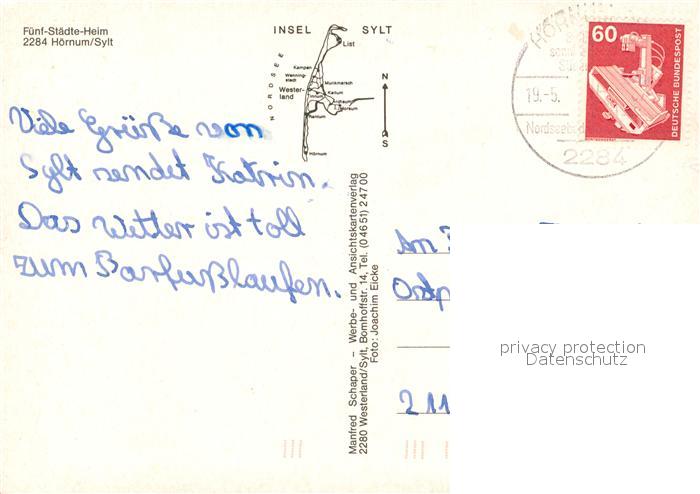 Fünf-Städte-Heim
2284 Hörnum/Sylt
INSEL SYLT
NORDSEE
List
Kampen
Wenning-
stadt
Munkmarsch
Wester-
land
Keitum
Tinnum
Archsum
Morsum
Rantum
Hörnum
N
S
Viele Grüße von
Sylt sendet Katrin.
Das Wetter ist toll
zum Barfußlaufen.
Manfred Schaper – Werbe- und Ansichtskartenverlag
2280 Westerland/Sylt, Bomhoffstr. 14, Tel. (0 46 51) 2 47 00
Foto: Joachim Eicke
HÖRNUM
19.-5.
Nordseeb
2284
60
DEUTSCHE BUNDESPOST
Am
Ostp
211
privacy protection
Datenschutz